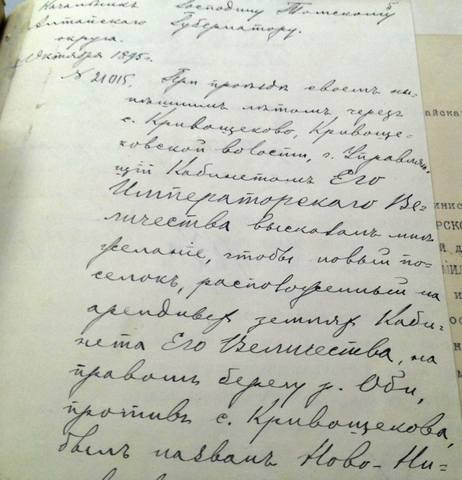 Начальникъ
Алтайскаго
округа.
Октября 1895 г.
№ 21015.
Господину Томскому
Губернатору.
При проѣздѣ своемъ ны-
нѣшнимъ лѣтомъ черезъ
с. Кривощеково, Кривоще-
ковской волости, г. Управляю-
щій Кабинетомъ Его
Императорскаго Ве-
личества высказалъ мнѣ
желаніе, чтобы новый по-
селокъ, расположенный на
арендныхъ земляхъ Каби-
нета Его Величества, на
правомъ берегу р. Оби,
противъ с. Кривощекова,
былъ названъ Ново-Ни-